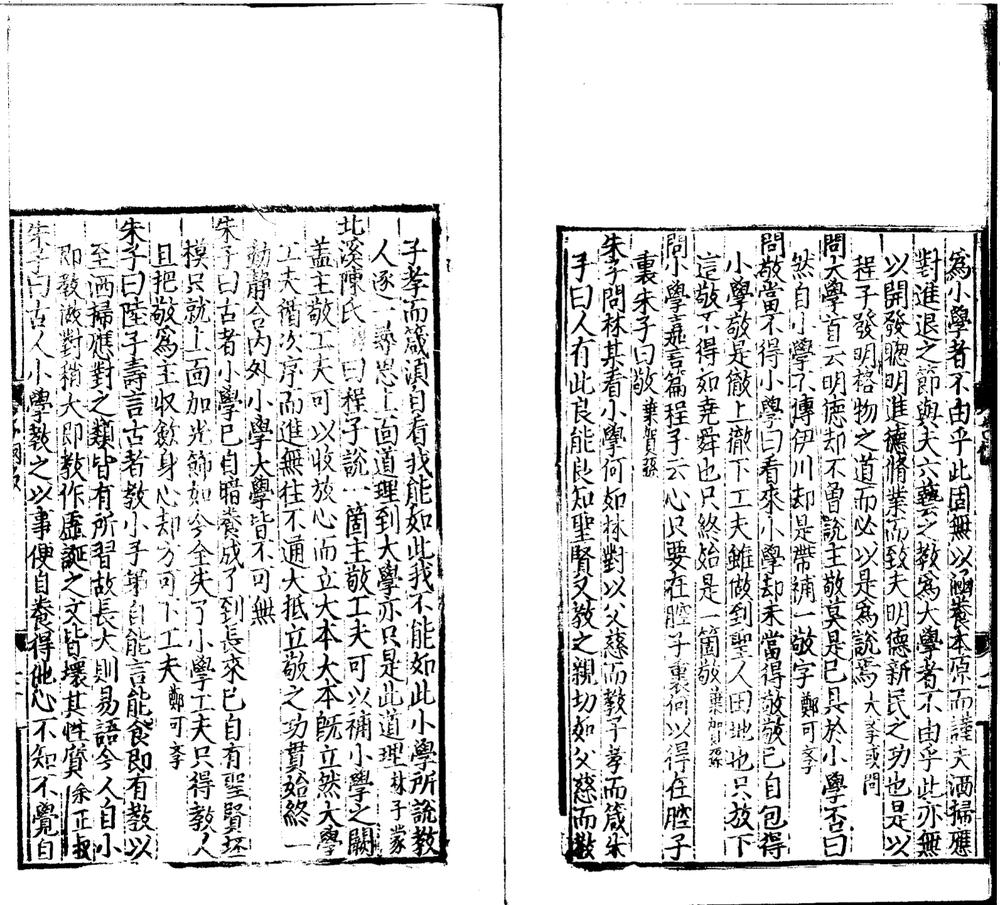 爲小學者不由乎此固無以涵養本原而謹夫洒掃應
對進退之節與夫六藝之教爲大學者不由乎此亦無
以開發聰明進德脩業而致夫明德新民之功也是以
程子發明格物之道而必以是爲說焉大學或問
問大學首云明德却不曽說主敬莫是已具於小學否曰
然自小學不傳伊川却是帶補一敬字鄭可學
問敬當不得小學曰看來小學却未當得敬敬已自包得
小學敬是徹上徹下工夫雖做到聖人田地也只放下
這敬不得如堯舜也只終始是一箇敬葉賀孫
問小學嘉言篇程子云心只要在腔子裏何以得在腔子
裏朱子曰敬葉賀孫
朱子問林某看小學何如林對以父慈而教子孝而箴朱
子曰人有此良能良知聖賢又敎之親切如父慈而敎
子孝而箴須自看我能如此我不能如此小學所說教
人逐一尋思上面道理到大學亦只是此道理林子蒙
北溪陳氏曰程子說一箇主敬工夫可以補小學之闕
蓋主敬工夫可以收放心而立大本大本旣立然大學
工夫循次序而進無往不通大抵立敬之功貫始終一
動靜合内外小學大學皆不可無
朱子曰古者小學已自暗養成了到長來已自有聖賢坯
模只就上面加光飾如今全失了小學工夫只得教人
且把敬爲主收斂身心却方可下工夫鄭可學
朱子曰陸子壽言古者教小子弟自能言能食即有教以
至洒掃應對之類皆有所習故長大則易語今人自小
即教做對稍大即教作虛誕之文皆壞其性質余正叔
朱子曰古人小學教之以事便自養得他心不知不覺自